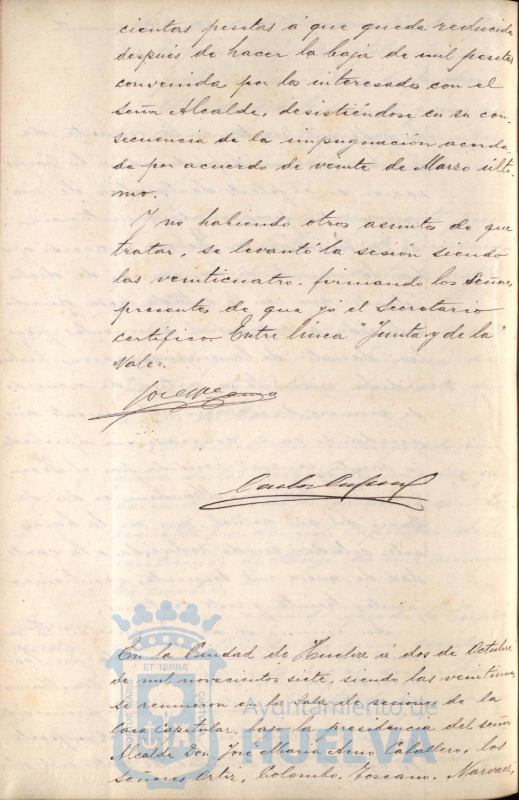 cientas pesetas á que queda reducida
después de hacer la baja de mil pesetas
convenida por los interesados con el
Señor Alcalde, desistiéndose en su con-
secuencia de la impugnación acorda-
da por acuerdo de veinte de Marzo últi-
mo.
Y no habiendo otros asuntos de que
tratar, se levantó la sesión siendo
las veinticuatro, firmando los Señores
presentes de que yo el Secretario
certifico. Entre linea "Junta y de la"
Vale.
En la Ciudad de Huelva á dos de Octubre
de mil novecientos siete, siendo las veintiuna
se reunieron en la Sala de sesiones de la
Casa Capitular, bajo la presidencia del señor
Alcalde Don José Maria Amo Caballero, los
Señores Ortiz, Colombo, Toscano, Narvaez,
PORTUS MARIS
ET TERRÆ
CUSTODIO
Ayuntamiento de
HUELVA